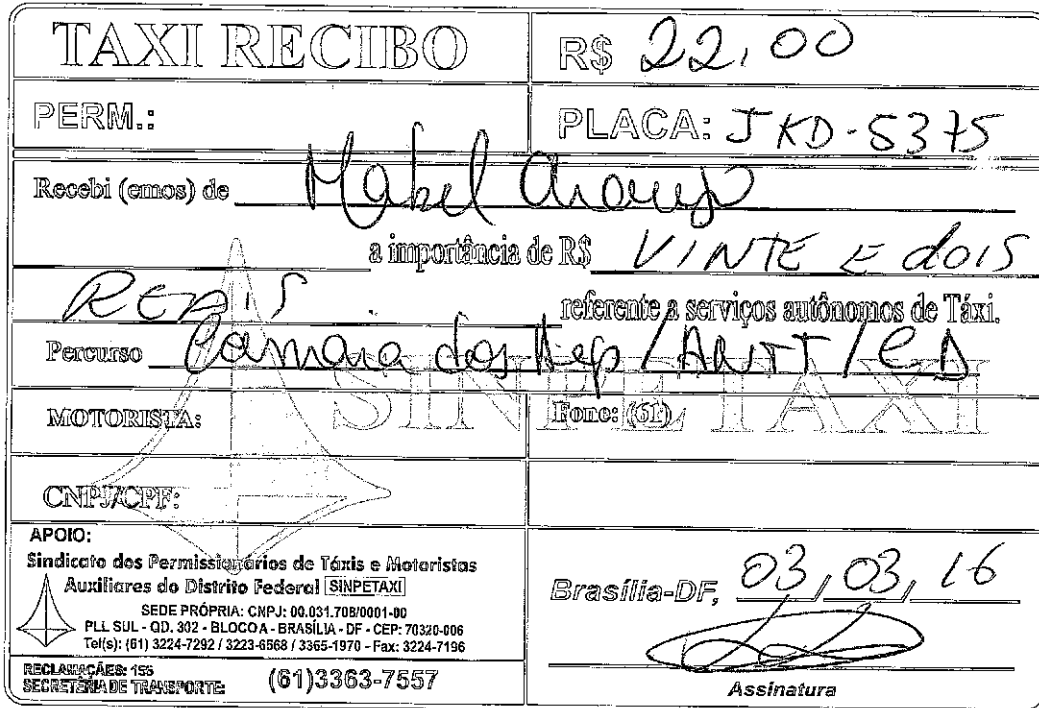 TAXI RECIBO
R$ 22,00
PERM.:
PLACA: JKD-5375
Recebi (emos) de Mabel Araujo
a importância de R$ VINTE E dois
REAIS referente a serviços autônomos de Táxi.
Percurso Câmara dos Dep / ANTT / CD
SINPETAXI
MOTORISTA:
Fone: (61)
CNPJ/CPF:
APOIO:
Sindicato dos Permissionários de Táxis e Motoristas
Auxiliares do Distrito Federal SINPETAXI
SEDE PRÓPRIA: CNPJ: 00.031.708/0001-00
PLL SUL - QD. 302 - BLOCO A - BRASÍLIA - DF - CEP: 70320-006
Tel(s): (61) 3224-7292 / 3223-6568 / 3365-1970 - Fax: 3224-7196
RECLAMAÇÃES: 156
SECRETÉRIA DE TRANSPORTE: (61)3363-7557
Brasília-DF, 03/03/16
Assinatura